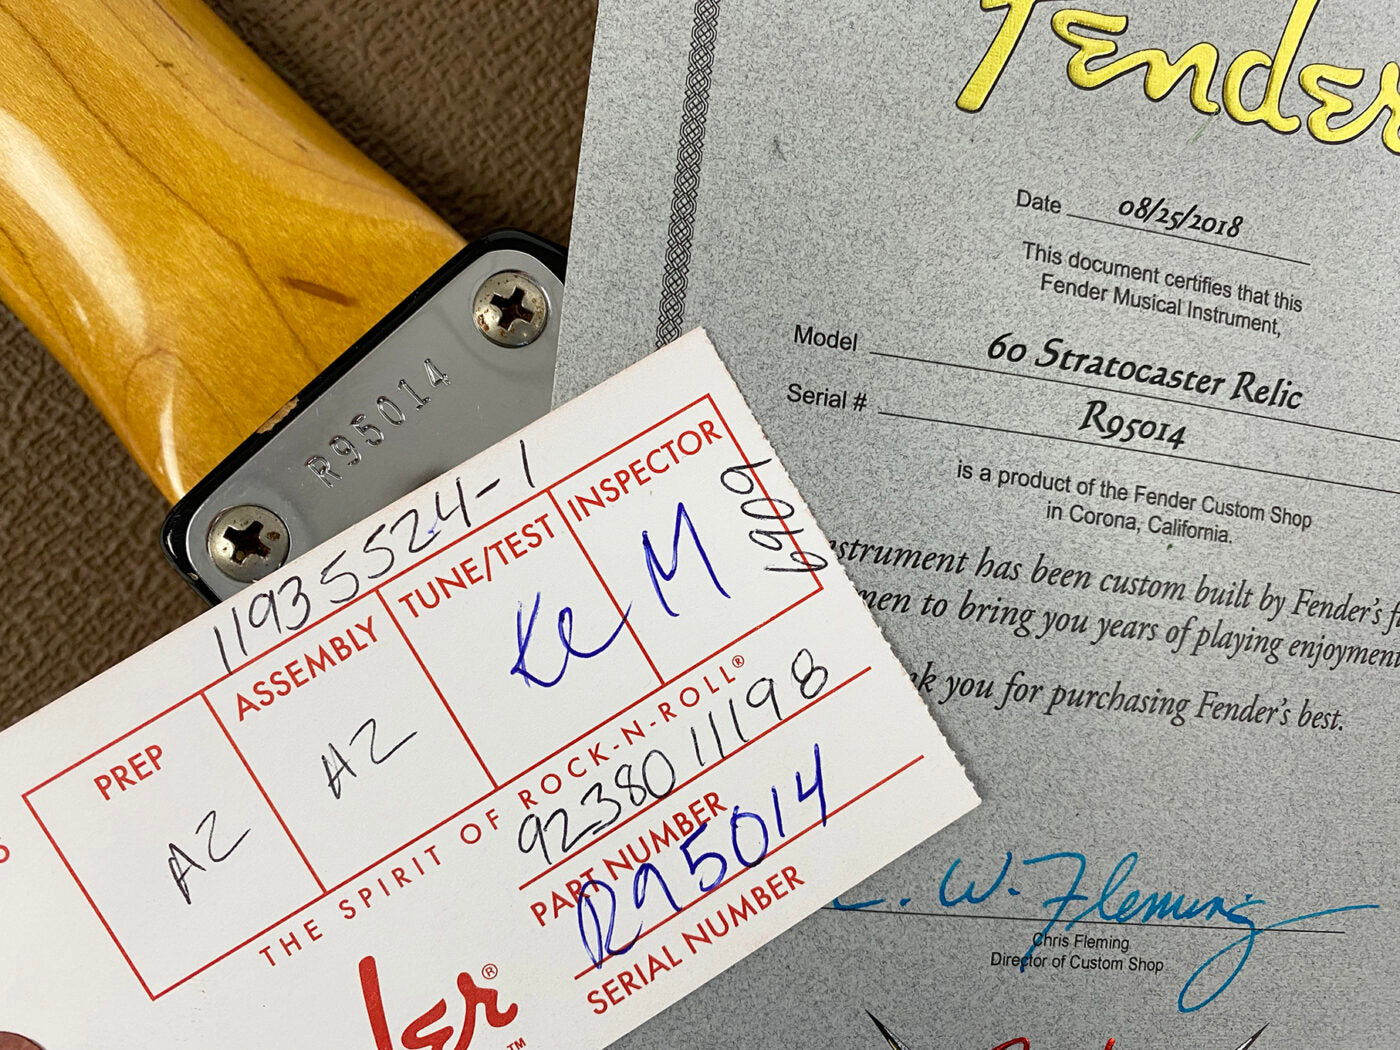 Fender
Date 08/25/2018
This document certifies that this
Fender Musical Instrument,
Model 60 Stratocaster Relic
Serial # R95014
is a product of the Fender Custom Shop
in Corona, California.
instrument has been custom built by Fender's
men to bring you years of playing enjoyment
you for purchasing Fender's best.
C. W. Fleming
Chris Fleming
Director of Custom Shop
R95014
11935524-1
PREP
ASSEMBLY
TUNE/TEST
INSPECTOR
AZ
AZ
Ke
M
6909
THE SPIRIT OF ROCK-N-ROLL®
92380 11198
PART NUMBER
R95014
SERIAL NUMBER
der®
TM